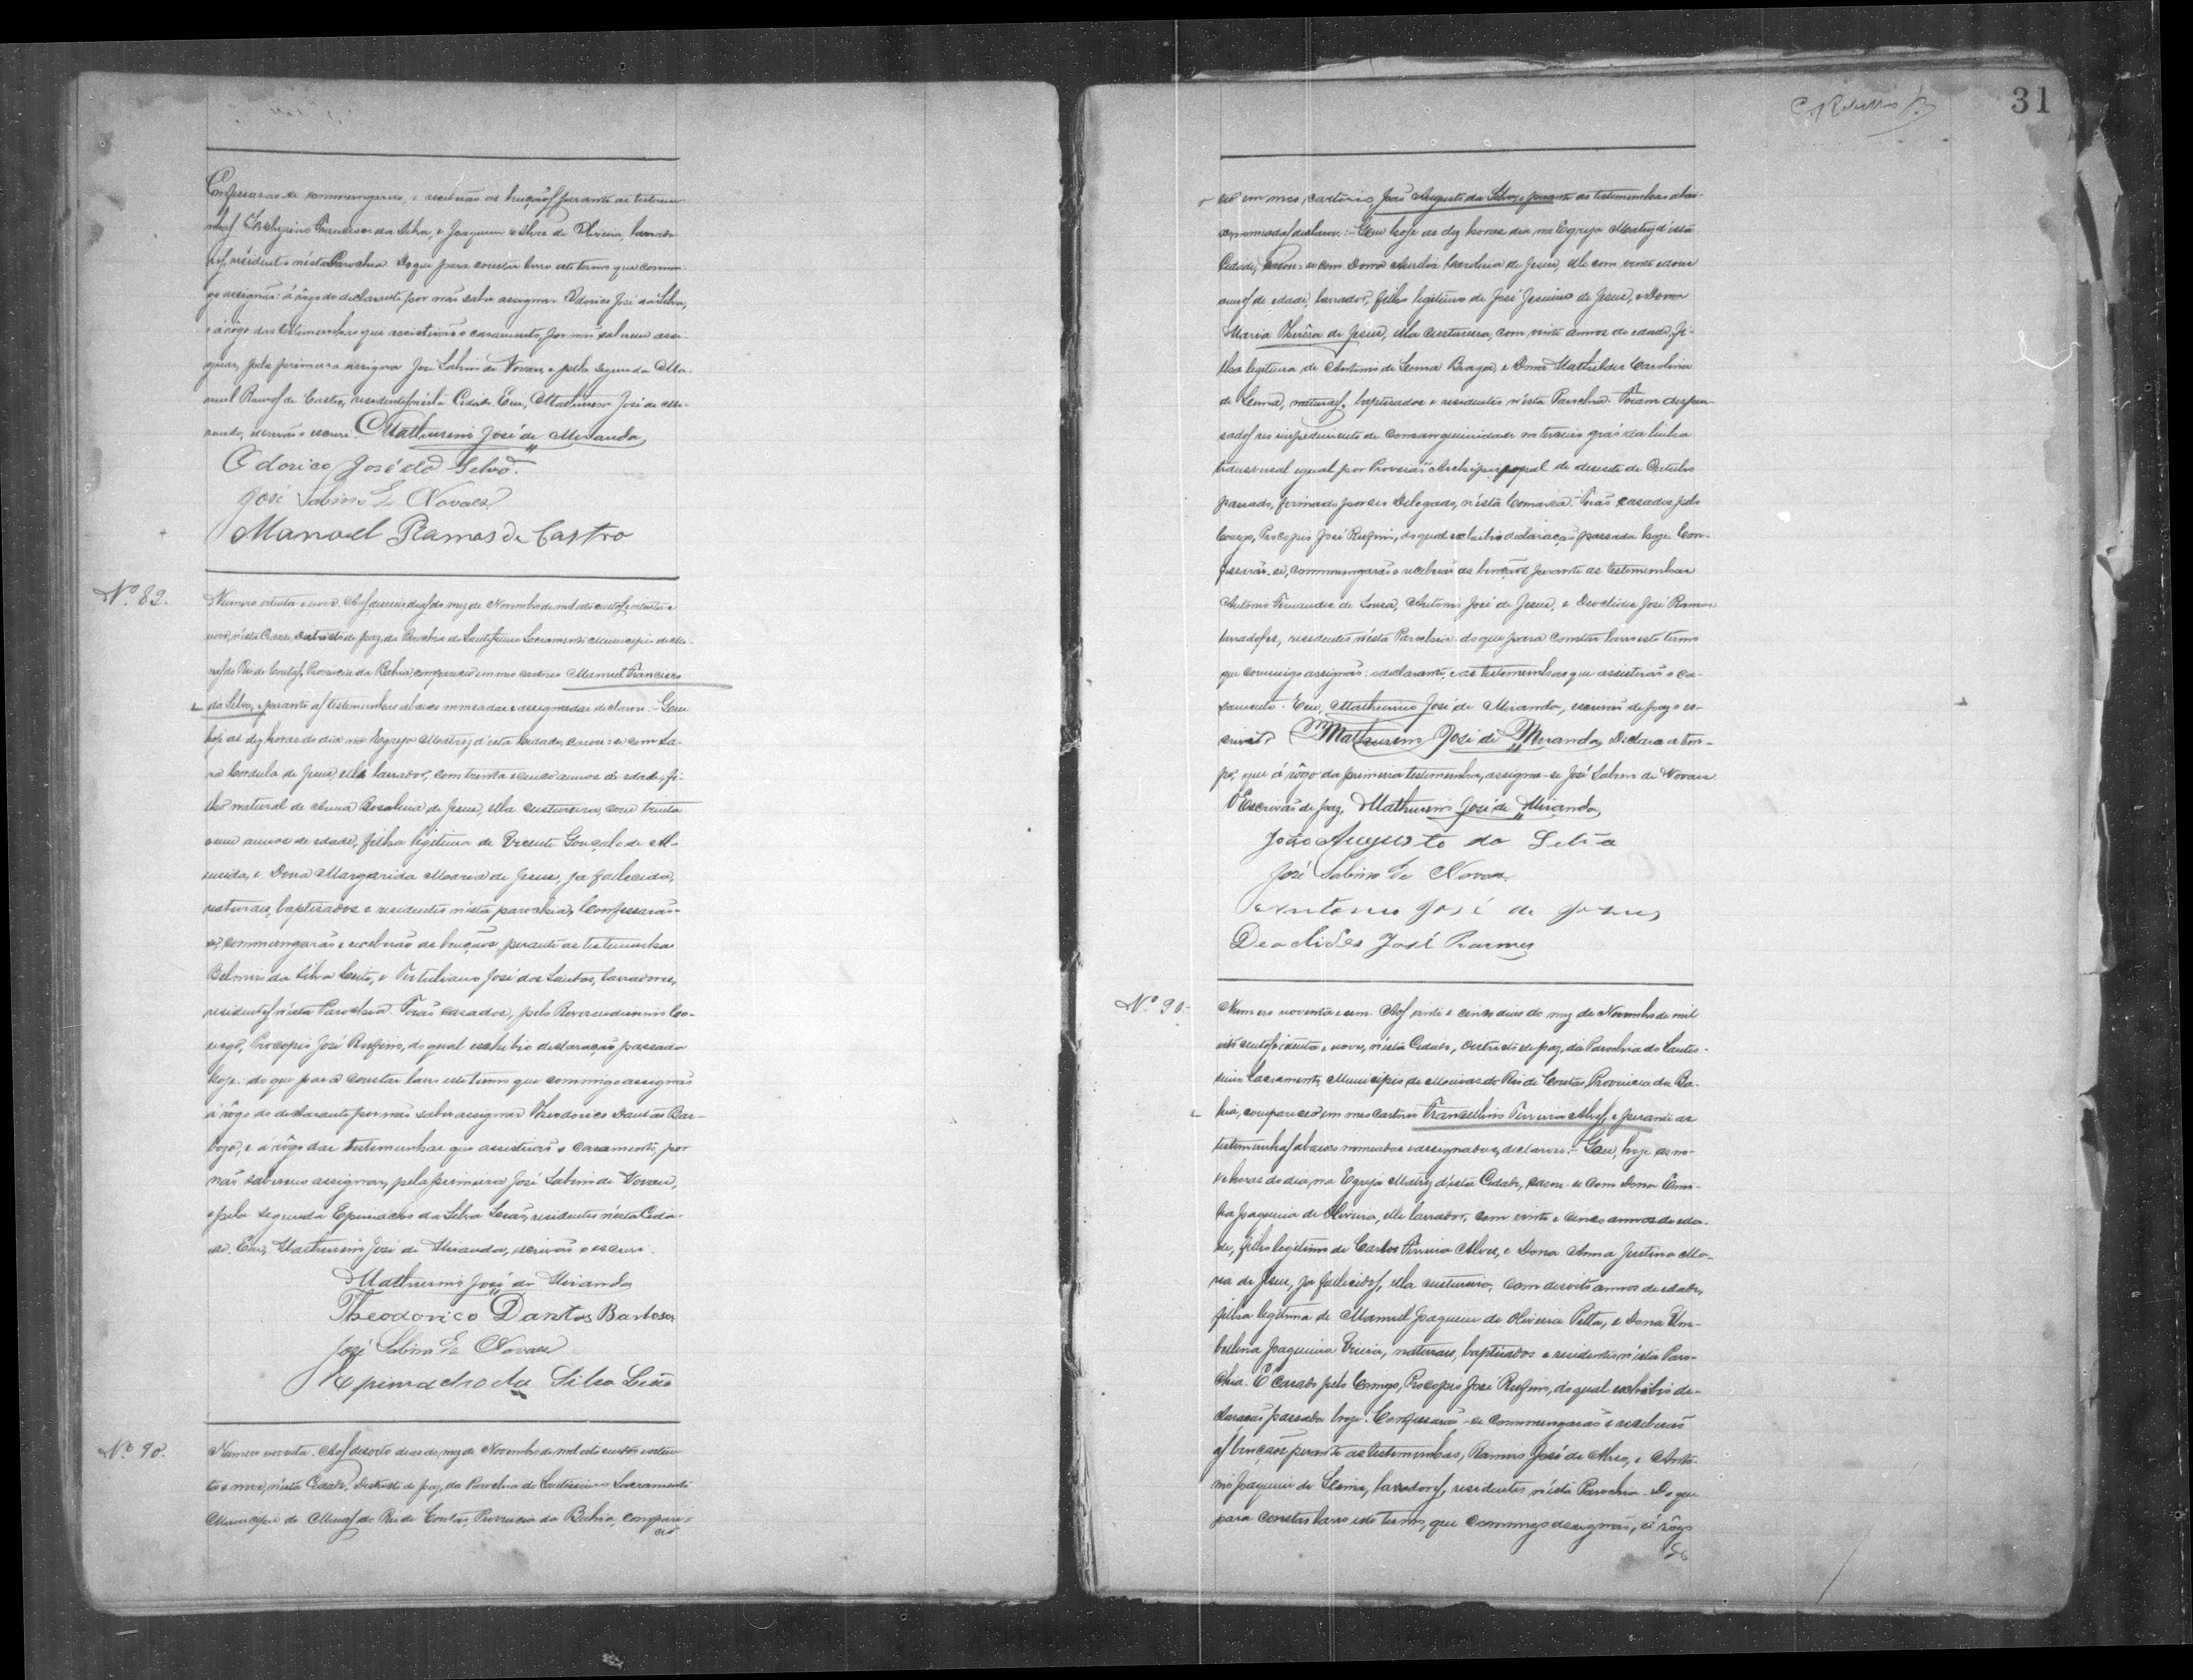 Confessarão-se commungarão, e receberão as bençãos perante as testemu-
nhas Francisco da Silva, e Joaquim Alves de Oliveira, lavrado-
res, residentes nésta Parochia. Do que para constar lavro este termo que commi-
go assignão: á rôgo do declarante, por não saber assignar Odorico José da Silva,
e á rôgo das testemunhas que assistirão o casamento, por não saberem assi-
gnar, pela primeira assigna José Sabino de Novaes, e pela segunda Ma-
noel Ramos de Castro, residentes nésta Cidade. Eu, Mathurino José de Mi-
randa, escrivão o escrevi. Mathurino José de Miranda
Odorico José da Silva.
José Sabino de Novaes
Manoel Ramos de Castro
Nº 89.
Numero oitenta e nove. Aos dias do mez de Novembro de mil oito centos e oitenta e
nove, nésta Cidade, Districto de paz, da Parochia do Santissimo Sacramento Municipio de Mi-
nas do Rio de Contas, Provincia da Bahia, compareceo em meo cartorio Manoel Francisco
da Silva, e perante as testemunhas abaixo nomeadas e assignadas declarou: - Que
hoje as dez horas do dia na Egreja Matriz d'esta Cidade, casou-se com
Cordula de Jesus, elle lavrador, com trinta e cinco annos de edade, fi-
lho natural de Anna Rosalina de Jesus, ella custureira, com trinta
e um annos de edade, filha legitima de Vicente Gonçalo de Al-
meida, e Dona Margarida Maria de Jesus, ja fallecida,
naturaes, baptisados e residentes nésta parochia, Confessarão-
se, commungarão e receberão as bençãos, perante as testemunhas
da Silva e Tertuliano José dos Santos, lavradores,
residentes nésta Parochia. Forão casados, pelo Reverendissimo Co-
nego, Procopio José Rufino, do qual exhibio declaração passada
hoje. do que para constar lavro este termo que commigo assignão
á rôgo do declarante por não saber assignar Theodorico Dantas Bar-
boza, e á rôgo das testemunhas que assistirão o casamento, por
não saberem assignar, pela primeira José Sabino de Novaes,
e pela segunda Epimacho da Silva Leão, residentes nésta Cida-
de. Eu, Mathurino José de Miranda, escrivão o escrevi.
Mathurino José de Miranda
Theodorico Dantas Barbosa
José Sabino de Novaes
Epimacho da Silva Leão
Nº 90.
Numero noventa. Aos desoito dias do mez de Novembro de mil oito centos e oiten-
ta e nove, nésta Cidade, Districto de paz, da Parochia do Santissimo Sacramento
Municipio de Minas do Rio de Contas, Provincia da Bahia, compare-
ceo
31
ceo em meo cartorio João Augusto da Silva, e perante as testemunhas abai-
xo nomeadas declarou: - Que hoje as dez horas dia na Egreja Matriz d'ésta
Cidade, casou-se com Dona Aurelia Carolina de Jesus, elle com vinte e
annos de edade, lavrador, filho legitimo de José Jesuino de Jesus, e Dona
Maria Theresa de Jesus, ella custureira, com vinte annos de edade, fi-
lha legitima de Antonio de Senna Braga, e Dona Mathildes Carolina
de Senna, naturaes, baptisados e residentes n'ésta Parochia. Foram dispen-
sados no impedimento de consanguinidade no terceiro gráo da linha
transversal egual por Provisão Archiepiscopal de desesete de Outubro
passado, firmado por seo Delegado, n'ésta Comarca. Forão casados pelo
Conego, Procopio José Rufino, do qual exhibio declaração passada hoje. Con-
fessarão-se, commungarão e receberão as bençãos perante as testemunhas
Antonio Fernandes de Sousa, Antonio José de Jesus, e Deoclides José Ramos
lavradores, residentes n'ésta Parochia. do que para constar lavro este termo
que commigo assignão: o declarante, e as testemunhas que assistirão o ca-
samento. Eu, Mathurino José de Miranda, escrivão de paz o es-
crevi. Mathurino José de Miranda. Declaro a tem-
po, que á rôgo da primeira testemunha, assigna-se José Sabino de Novaes
O Escrivão de paz, Mathurino José de Miranda
João Augusto da Silva
José Sabino de Novaes
Antonio José de Jesus
Deoclides José Ramos
Nº 90-
Numero noventa e um. Aos vinte e cinco dias do mez de Novembro de mil
oito centos oitenta e nove, nésta Cidade, Districto de paz, da Parochia do Santis-
simo Sacramento, Municipio de Minas do Rio de Contas, Provincia da Ba-
hia, compareceo em meo cartorio Francellino Ferreira Alves, e perante as
testemunhas abaixo nomeadas e assignadas, declarou: - Que, hoje as no-
ve horas do dia, na Egreja Matriz d'esta Cidade, casou-se com Dona
Joaquina de Oliveira, elle lavrador, com vinte e cinco annos de eda-
de, filho legitimo de Carlos Ferreira Alves, e Dona Anna Justina Ma-
ria de Jesus, ja fallecidos, ella custureira, com desoito annos de edade,
filha legitima de Manoel Joaquim de Oliveira Pitta, e Dona Um-
bellina Joaquina Vieira, naturaes, baptisados e residentes n'ésta Paro-
chia. É casado pelo Conego, Procopio José Rufino, do qual exhibio de-
claração passada hoje. Confessarão-se commungarão e receberão
as bençãos perante as testemunhas, Ramiro José de Abreo, e Anto-
nio Joaquim de Senna, lavradores, residentes n'ésta Parochia. Do que
para constar lavro este termo, que commigo assignão, á rôgo
do